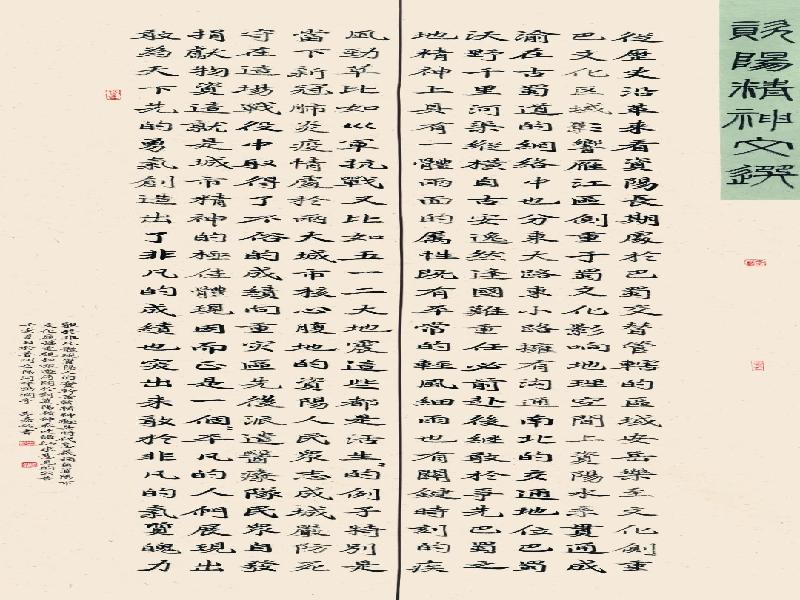 資陽精神文選
從歷史沿革来看資陽長期處於巴蜀交替管轄的區域安岳樂至文化側重
巴文化區域影響雁江區側重于蜀文化影响地理空間上資陽水系貫通成
渝在古蜀道的網絡中也分東大路東小路擁有沟通南北的交通地位巴蜀
沃野千里河渠縱橫自古安逸然逢國難重任必前赴後继敢於爭先巴蜀之
地精神上具有一體两面的属性既有平常的輕風細雨也有關鍵時刻的疾
風勁草比如川軍抗戰又比如五一二大地震這些都是活生的例子特别是
當下新冠肺炎疫情處於兩大城市核心腹地的資陽人民眾志成城嚴防死
守在這場戰役中取得了不俗的成績向重灾區先後派遣醫療隊民眾自發
捐獻物資這就是城市精神的極佳體現因而正是一個不凡的人們展現出
敢為天下先的勇氣創造出了非凡的成績也突出来敢於非凡的氣質魄力